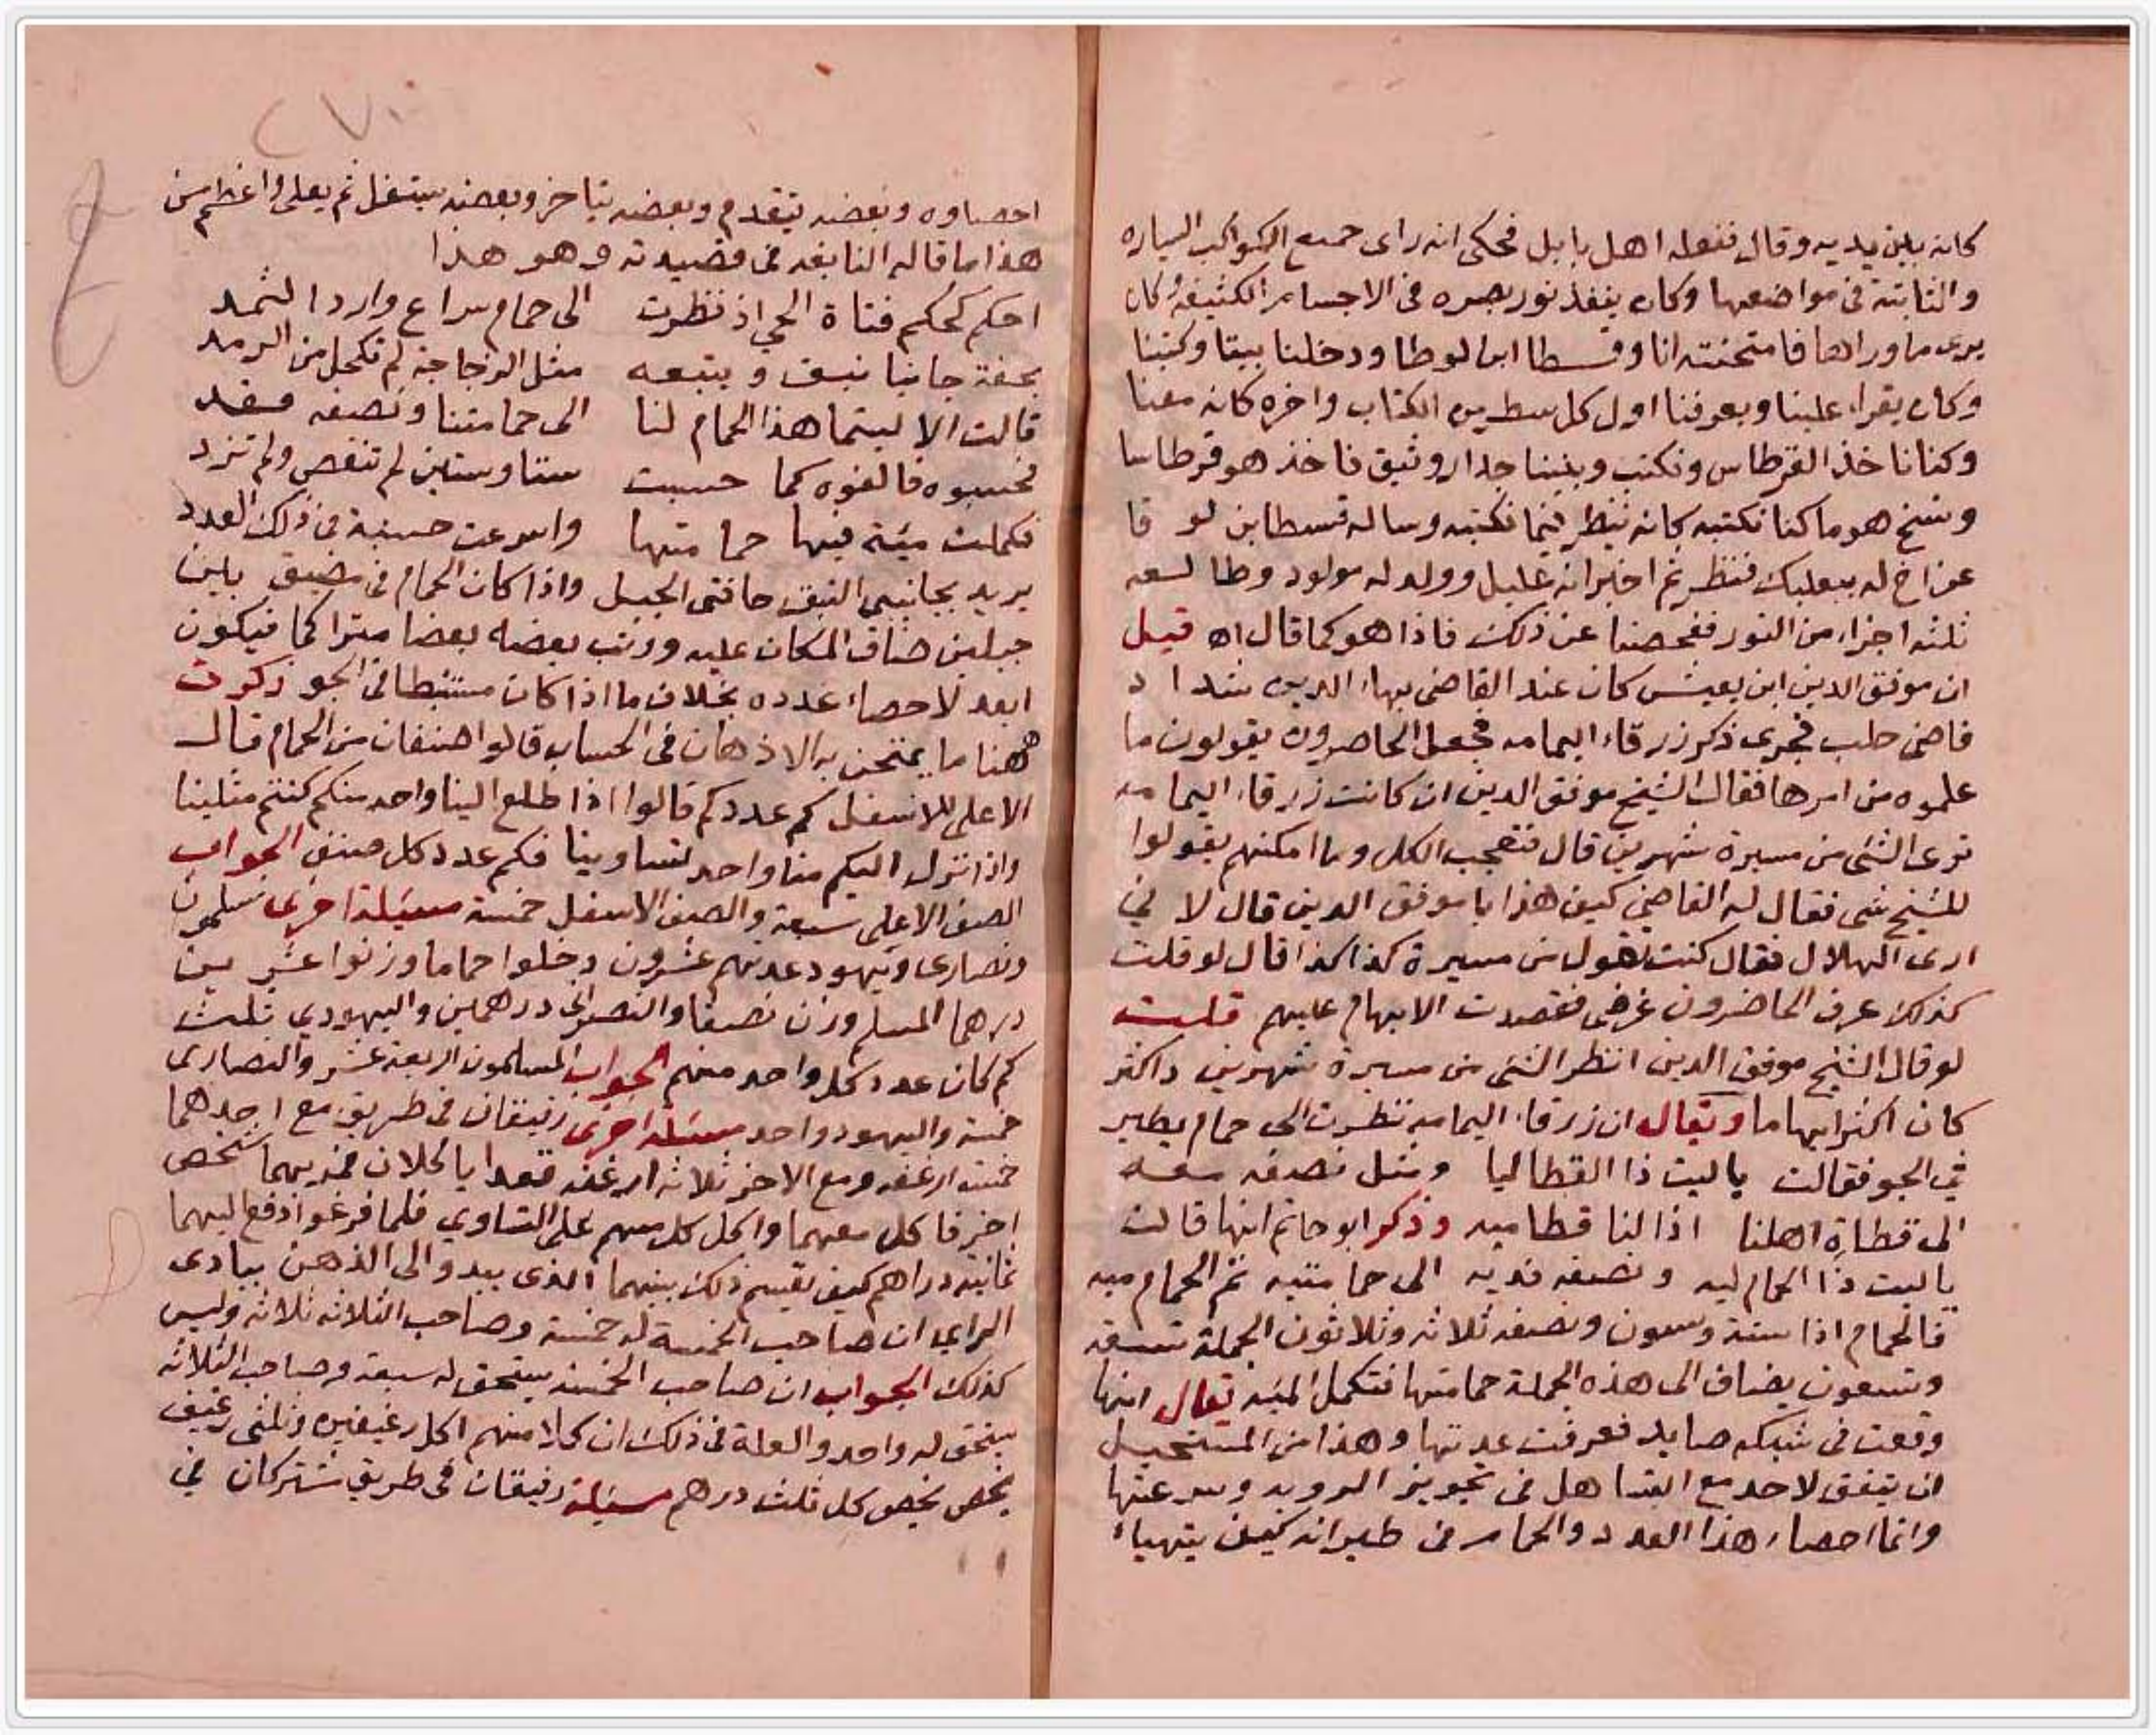 كانه بين يديه وقال ففعله اهل بابل فحكى انه راى جميع الكواكب السياره
والثابتة فى مواضعها وكان ينفذ نور بصره فى الاجسام الكثيفة وكان
يرى ما وراها فامتحنته انا وقسطا ابن لوطا ودخلنا بيتا وكتبنا
وكان يقراء علينا ويعرفنا اول كل سطر من الكتاب واخره كانه معنا
وكنا ناخذ القرطاس ونكتب وبيننا جدار وثيق فاخذ هو قرطاسا
ونسخ هو ما كنا نكتبه كانه ينظر فيما نكتبه وساله قسطا بن لوقا
عن اخ له ببعلبك فنظر ثم اخبر انه عليل وولد له مولود وطالعه
ثلثه اجزاء من الثور ففحصنا عن ذلك فاذا هو كما قال اه قيل
ان موفق الدين ابن يعيش كان عند القاضى بهاء الدين شداد
قاضى حلب فجرى ذكر زرقاء اليمامه فجعل الحاضرون يقولون ما
علموه من امرها فقال الشيخ موفق الدين ان كانت زرقاء اليمامه
ترى الشئ من مسيرة شهرين قال فتعجب الكل وما امكنهم يقولوا
للشيخ شى فقال له القاضي كيف هذا يا موفق الدين قال لا ني
ارى الهلال فقال كنت تقول من مسيرة كذا كذا قال لو قلت
كذلك عرف الحاضرون غرضى فقصدت الابهام عليهم قلت
لو قال الشيخ موفق الدين انظر الشئ من مسيرة شهرين واكثر
كان اكثر ابهاما ويقال ان زرقاء اليمامه نظرت الى حمام يطير
في الجو فقالت ياليت ذا القطاليا ومثل نصفه معه
الى قطاة اهلنا اذا لنا قطاميه وذكر ابو حاتم انها قالت
ياليت ذا الحمام ليه ونصفه قديه الى حمامتيه تم الحمام ميه
فالحمام اذا ستة وستون ونصفه ثلاثه وثلاثون الجملة تسعه
وتسعون يضاف الى هذه الجملة حمامتها فتكمل الميه يقال انها
وقعت فى شبكه صايد فعرفت عدتها وهذا من المستحيل
ان يتفق لاحد مع التساهل فى تجويز الرويه وسرعتها
وانما احصاء هذا العدد والحمام فى طيرانه كيف يتهياء
احصاوه وبعضه يتقدم وبعضه يتاخر وبعضه يستفل ثم يعلى واعظم من
هذا ما قاله النابغه فى قصيدته وهو هذا
احكم كحكم فتاة الحي اذ نظرت الى حمام سراع وارد الثمد
يحفه جانبا نيق ويتبعه مثل الزجاجة لم تكحل من الرمد
قالت الا ليتما هذا الحمام لنا الى حمامتنا ونصفه فقد
فحسبوه فالفوه كما حسبت ستا وستين لم تنقص ولم تزد
فكملت مية فيها حمامتها واسرعت حسبة فى ذلك العدد
يريد بجانبي النيق حافتى الجبل واذا كان الحمام فى مضيق بين
جبلين ضاق المكان عليه وركب بعضه بعضا متراكما فيكون
ابعد لاحصاء عدده بخلاف ما اذا كان منبسطا فى الجو ذكرت
ههنا ما يمتحن به الاذهان فى الحساب قالوا صنفان من الحمام قال
الاعلى للاسفل كم عددكم قالوا اذا طلع الينا واحد منكم كنتم مثلينا
واذا نزل اليكم منا واحد تساوينا فكم عدد كل صنف الجواب
الصنف الاعلى سبعة والصنف الاسفل خمسة مسيلة اخرى مسلمون
ونصارى ويهود عدتهم عشرون دخلوا حماما وزنوا عشرين
درهما المسلم وزن نصفا والنصرانى درهمين واليهودى ثلث
كم كان عدد كل واحد منهم الجواب المسلمون اربعة عشر والنصارى
خمسة واليهود واحد مسيله اخرى رفيقان فى طريق مع احدهما
خمسة ارغفه ومع الاخر ثلاثه ارغفه قعدا يا كلان فمر بهما شخص
اخر فاكل معهما واكل كل منهم على التساوي فلما فرغوا دفع اليهما
ثمانية دراهم كيف تقسم ذلك بينهما الذى يبدو الى الذهن ببادى
الراي ان صاحب الخمسة له خمسة وصاحب الثلاثه ثلاثه وليس
كذلك الجواب ان صاحب الخمسه يستحق له سبعة وصاحب الثلاثه
يستحق له واحد والعلة فى ذلك ان كلا منهم اكل رغيفين وثلثى رغيف
يخص كل ثلث درهم مسئلة رفيقان فى طريق شتركان في